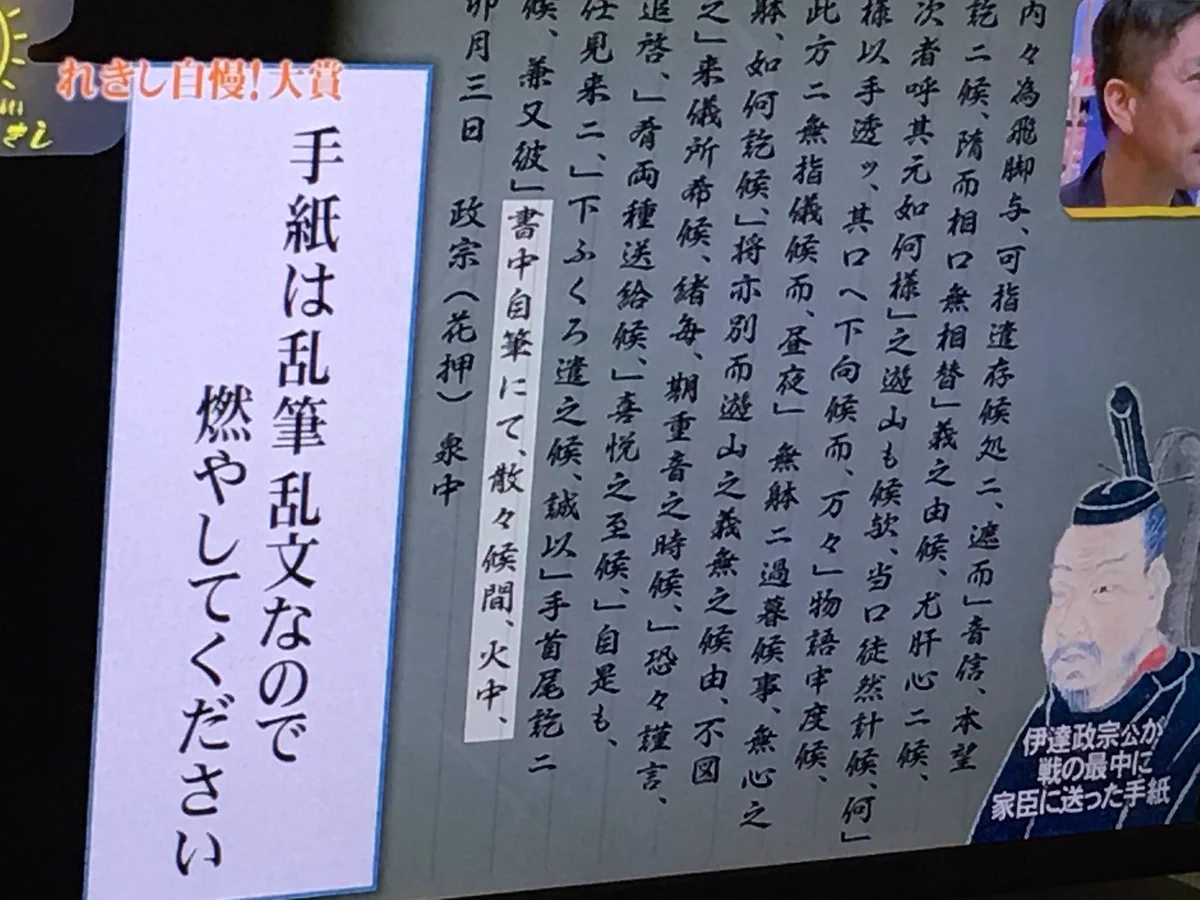 れきし自慢!大賞
きし
内々為飛脚与、可指遣存候処ニ、遮而」音信、本望
訖ニ候、隋而相口無相替」義之由候、尤肝心ニ候、
次者呼其元如何様」之遊山も候欤、当口徒然計候、何」
様以手透ッ、其口へ下向候而、万々」物語申度候、
此方ニ無指儀候而、昼夜」無躰ニ過暮候事、無心之
躰、如何訖候、」将亦別而遊山之義無之候由、不図
之」来儀所希候、緒毎、期重音之時候、」恐々謹言、
追啓、」肴両種送給候、」喜悦之至候、」自是も、
任見来ニ、」下ふくろ遣之候、誠以」手首尾訖ニ
候、兼又彼」書中自筆にて、散々候間、火中、
卯月三日 政宗(花押) 泉中
手紙は乱筆乱文なので
燃やしてください
伊達政宗公が
戦の最中に
家臣に送った手紙